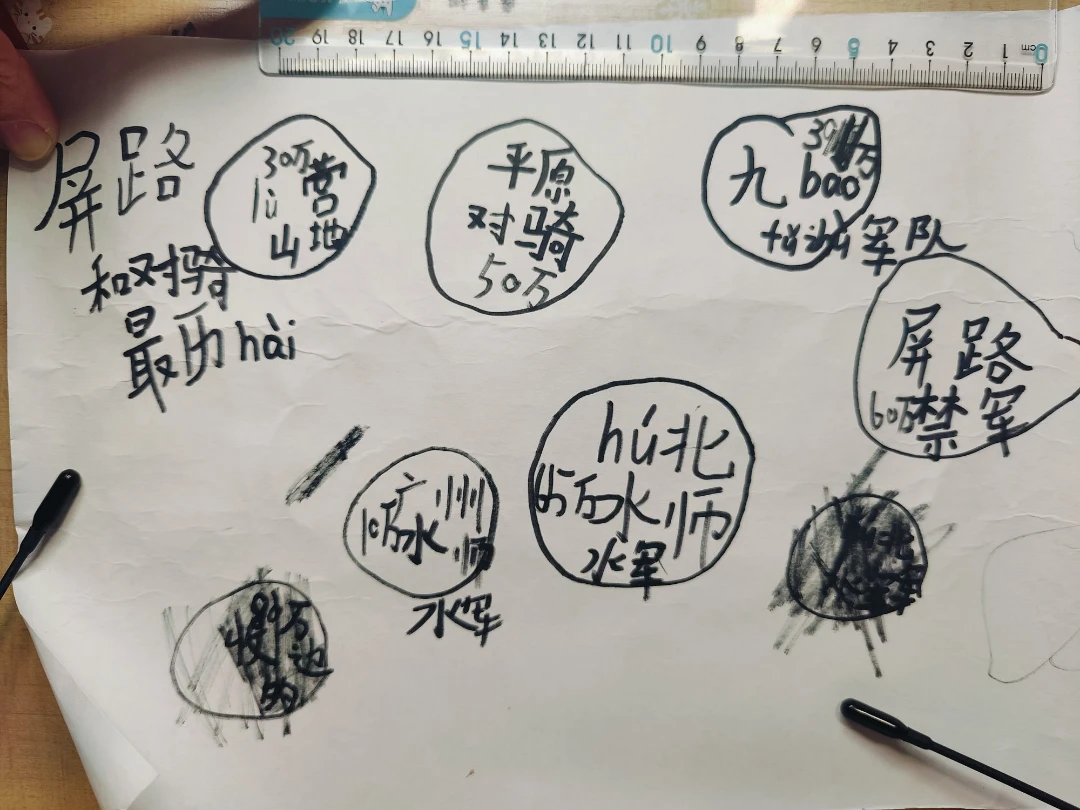 20 19 18 17 16 15 14 13 12 11 10 9 8 7 6 5 4 3 2 1 0cm
屏路
和对骑
最历hài
30万营
lù
山地
平原
对骑
50万
九bao
tǔzhù军队
屏路
60万禁军
广州
10万水师
水军
hú北
65万水师
水军